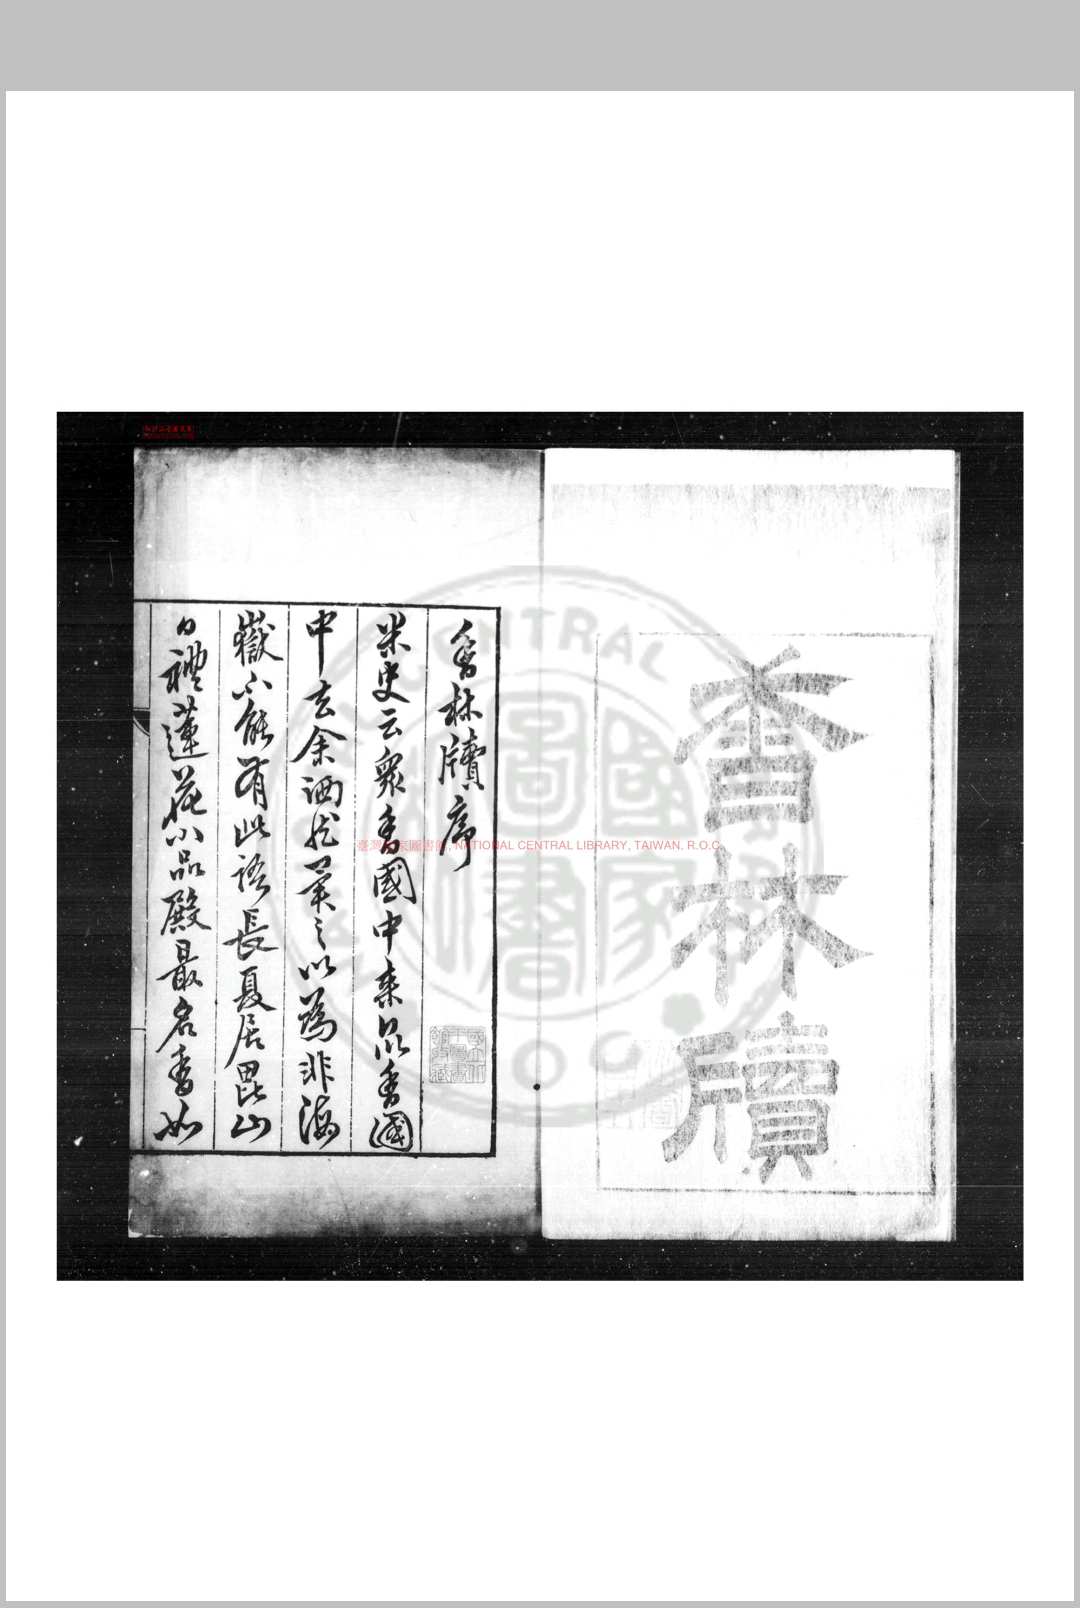 香林牘
香林牘序
米史云衆香國中來衆香國
中去余洒然異之以為非海
嶽不能有此語長夏居毘山
日禮蓮花小品殿最名香如
臺灣國家圖書館, NATIONAL CENTRAL LIBRARY, TAIWAN, R.O.C
CENTRAL
國家圖書